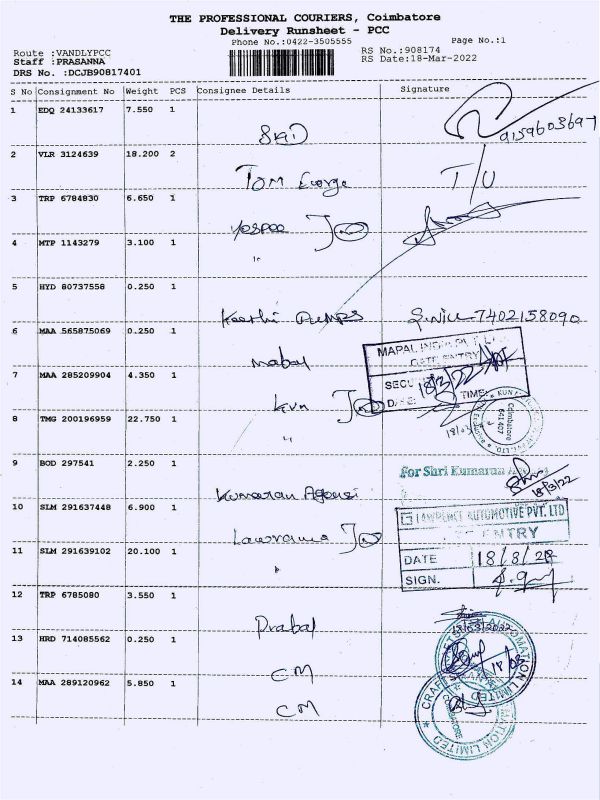 THE PROFESSIONAL COURIERS, Coimbatore
Delivery Runsheet - PCC
Phone No.:0422-3505555 Page No.:1
Route :VANDLYPCC RS No.:908174
Staff :PRASANNA RS Date:18-Mar-2022
DRS No. :DCJB90817401
S No Consignment No Weight PCS Consignee Details Signature
1 EDQ 24133617 7.550 1
2 VLR 3124639 18.200 2
Tom George T/U
3 TRP 6784830 6.650 1
4 MTP 1143279 3.100 1
"
5 HYD 80737558 0.250 1
Keerthi Pumps 7402158090
6 MAA 565875069 0.250 1
Mapal MAPAL INDIA
GATE ENTRY
7 MAA 285209904 4.350 1 18/3/22
DATE: TIME:
KVN
8 TMG 200196959 22.750 1
Coimbatore
641 407
"
9 BOD 297541 2.250 1
for Shri Kumaran
18/3/22
Kumaran Agensi
10 SLM 291637448 6.900 1
LAWRENCE AUTOMOTIVE PVT. LTD
ENTRY
11 SLM 291639102 20.100 1
DATE
SIGN.
12 TRP 6785080 3.550 1
Prabal 18/03/2022
13 HRD 714085562 0.250 1
CM 18/03
14 MAA 289120962 5.850 1
CM
CRAFTSMAN AUTOMATION LIMITED